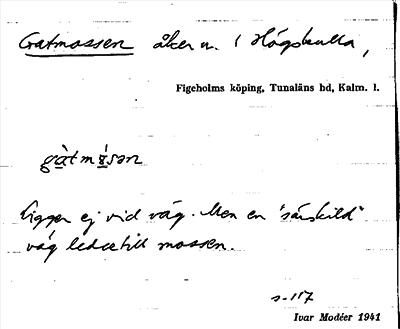 Gatmossen åker n. i Högskulla,
Figeholms köping, Tunaläns hd, Kalm. l.
gàtmŏ́san
Ligger ej vid väg. Men en "särskild"
väg ledde till mossen.
s-117
Ivar Modéer 1941